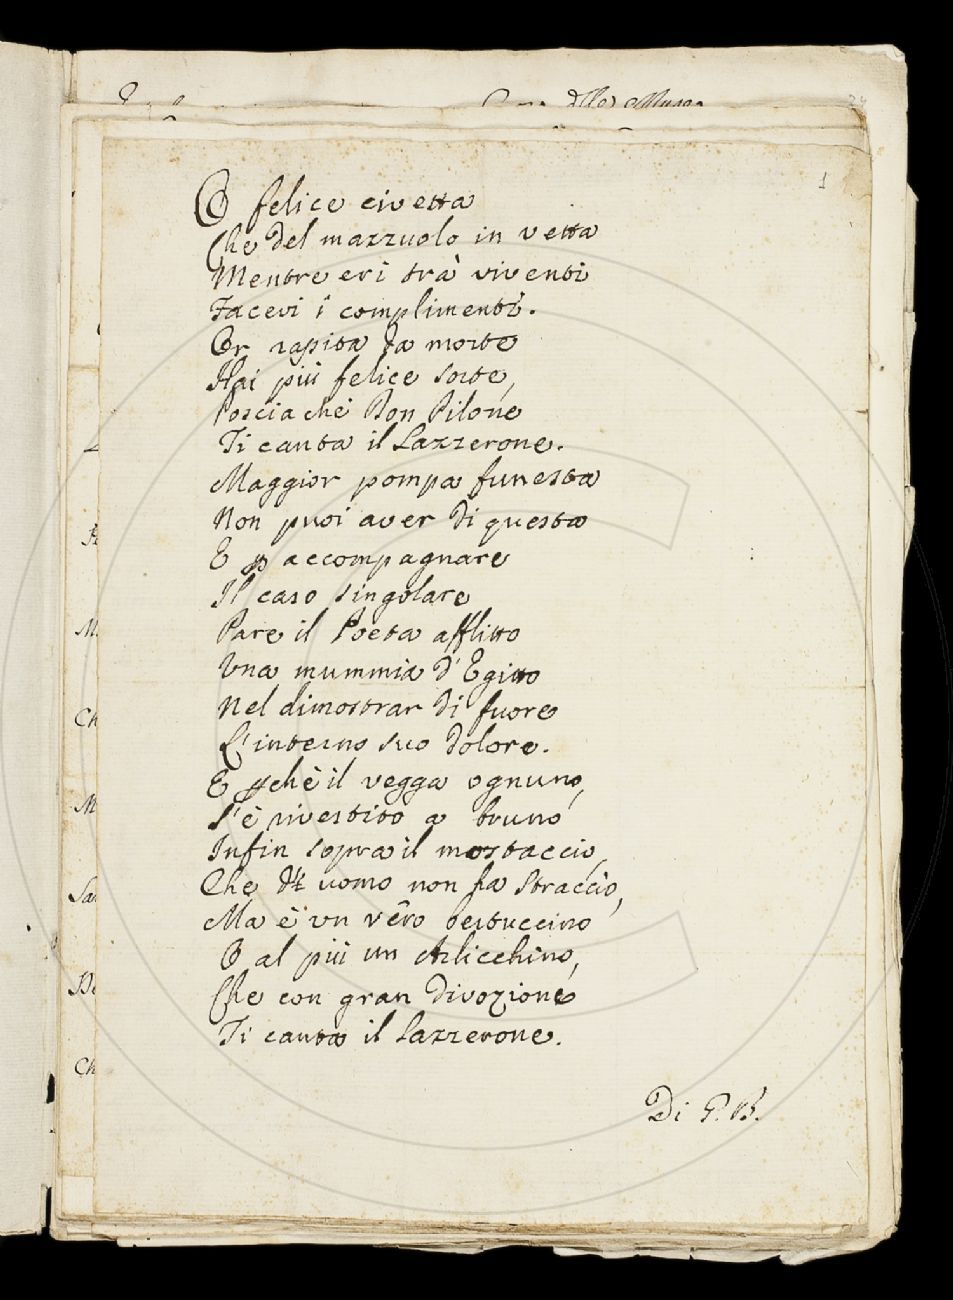 1
O felice civetta
Che del mazzuolo in vetta
Mentre eri trà viventi
Facevi i complimenti.
Or rapita da morte
Hai più felice sorte,
Poscia che Don Pilone
Ti canta il Lazzerone.
Maggior pompa funesta
Non puoi aver di questa
E ꝑ accompagnare
Il caso singolare
Pare il Poeta afflitto
Una mummia d'Egitto
Nel dimostrar di fuore
L'interno suo dolore.
E ꝑchè il vegga ognuno,
S'è rivestito a bruno
Infin sopra il mostaccio,
Che uomo non fa straccio,
Ma è un vero bertuccino
O al più un Arlicchino,
Che con gran divozione
Ti canta il Lazzerone.
Di G. B.